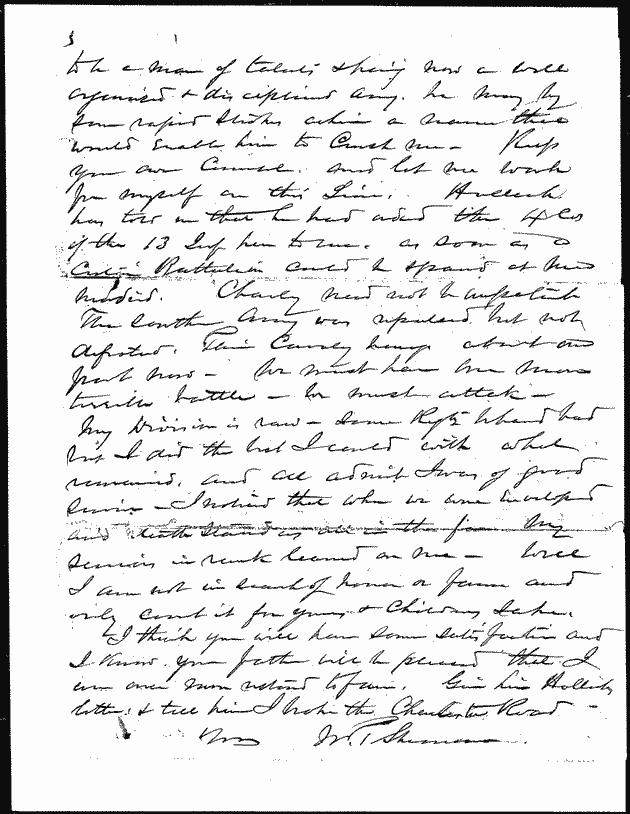 3
to be a man of talents & having now a well
organised & disciplined army. he may by
some rapid strokes achieve a name
would enable him to Crush me - Keep
your own Counsel. and let me work
for myself on this Line. Halleck
has told me that he had asked the 4 Cos
of the 13 Inf here to me. as soon as a
Battalion could be spared at New
Madrid. Charley need not be impatient
The Southern Army was repulsed but not
defeated. Their Cavalry hangs about our
front now - We must have one more
terrible battle - We must attack -
My Division is raw - Some Regts behaved bad
but I did the best I could with what
remained, and all admit I was of good
Service - I noticed that when we were enveloped
and death stared us all in the face My
seniors in rank leaned on me - Well
I am not in search of honor or fame and
only count it for yours & Childrens sake.
I think you will have some satisfaction and
I know your father will be pleased that I
am once more restored to fame. Give him Hallecks
letter. & tell him I broke the Charleston Road -
Yrs W. T. Sherman.